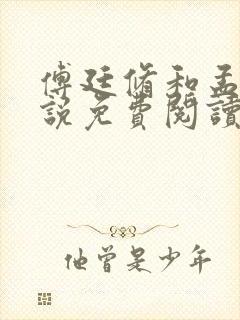 傅廷脩和孟
說免費閱讀
他曾是少年